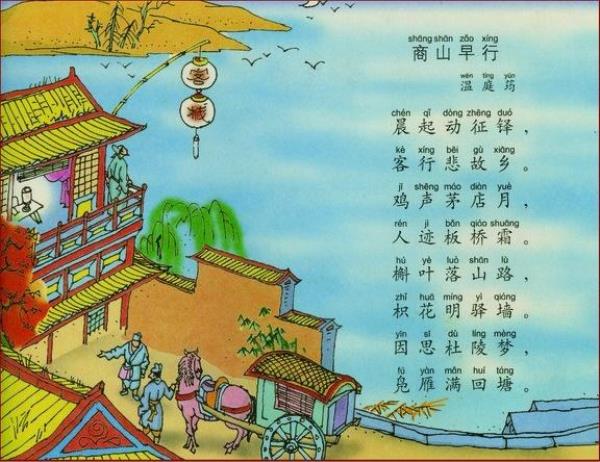 客
shāng shān zǎo xíng
商山早行
wēn tíng yún
温庭筠
chén qǐ dòng zhēng duó
晨起动征铎，
kè xíng bēi gù xiāng
客行悲故乡。
jī shēng máo diàn yuè
鸡声茅店月，
rén jì bǎn qiáo shuāng
人迹板桥霜。
hú yè luò shān lù
槲叶落山路，
zhǐ huā míng yì qiáng
枳花明驿墙。
yīn sī dù líng mèng
因思杜陵梦，
fú yàn mǎn huí táng
凫雁满回塘。